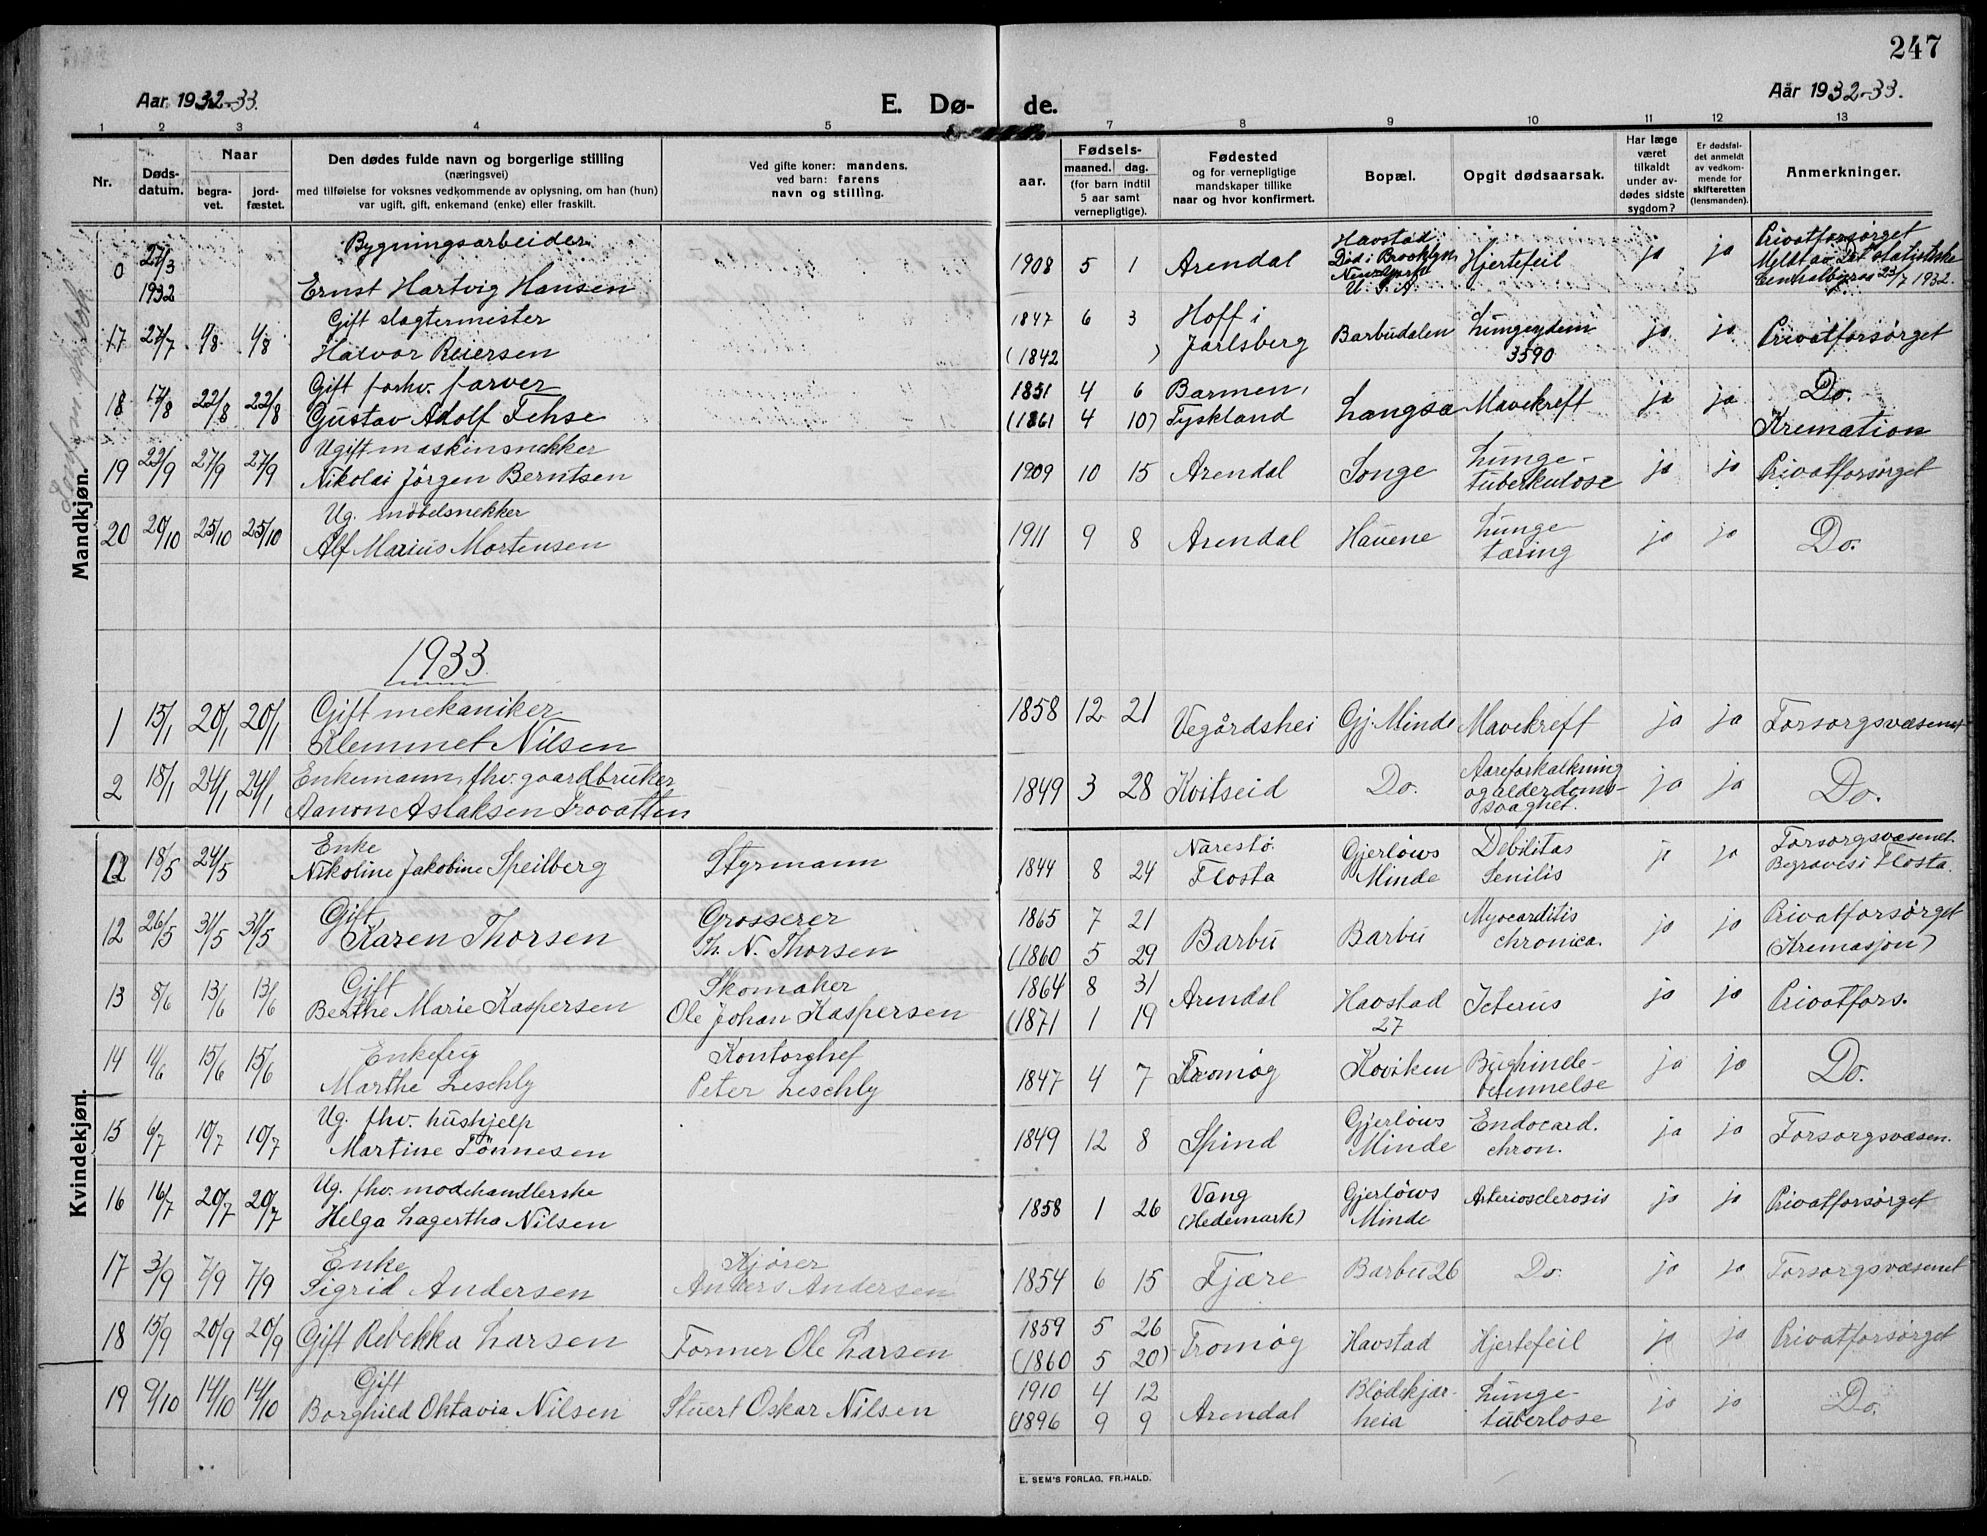 247
Aar 1932-33. E. Dø- de. Aar 1932-33.
1 2 3 4 5 7 8 9 10 11 12 13
Nr. Døds-datum. Naar begra-vet. jord-fæstet. Den dødes fulde navn og borgerlige stilling (næringsvei) med tilføielse for voksnes vedkommende av oplysning, om han (hun) var ugift, gift, enkemand (enke) eller fraskilt. Ved gifte koner: mandens. ved barn: farens navn og stilling. aar. Fødsels- maaned. dag. (for barn indtil 5 aar samt vernepligtige). Fødested og for vernepligtige mandskaper tillike naar og hvor konfirmert. Bopæl. Opgit dødsaarsak. Har læge været tilkaldt under av-dødes sidste sygdom? Er dødsfal-det anmeldt av vedkom-mende for skifteretten (lensmanden). Anmerkninger.
Mandkjøn.
0 27/3 1932 Bygningsarbeider Ernst Hartvig Hansen 1908 5 1 Arendal Havstad Død i Brooklyn U. S. A. Hjertefeil ja ja Privatforsørget Meldt av Det statistiske Centralbyrå 23/7 1932.
17 27/7 1/8 1/8 Gift slagtermester Halvor Reiersen 1847 6 3 (1842 ) Hoff i Jarlsberg Barbudalen Lungeødem 3590 ja ja Privatforsørget
18 17/8 22/8 22/8 Gift forhv. farver Gustav Adolf Fehse 1851 4 6 (1861 4 10) Barmen, Tyskland Langsa Mavekreft ja ja Do. Kremation
19 22/9 27/9 27/9 Ugift maskinsnekker Nikolai Jörgen Berntsen 1909 10 15 Arendal Songe Lunge-tuberkulose ja ja Privatforsørget
20 20/10 25/10 25/10 Ug. møbelsnekker Alf Marius Mortensen 1911 9 8 Arendal Hauene Lunge tæring ja ja Do.
1933
1 15/1 20/1 20/1 Gift mekaniker Klemmet Nilsen 1858 12 21 Vegårdshei Gj. Minde Mavekreft ja ja Forsorgsvæsenet
2 18/1 24/1 24/1 Enkemann, fhv. gaardbruker Aanon Aslaksen Trovatten 1849 3 28 Kvitseid Do. Aareforkalkning og alderdoms-svaghet. ja ja Do.
Kvindekjøn.
11 18/5 24/5 Enke Nikoline Jakobine Speilberg Styrmann 1844 8 24 Narestø Flosta Gjerløws Minde Debilitas Senilis ja ja Forsorgsvæsenet. Begraves i Flosta.
12 26/5 31/5 31/5 Gift Karen Thorsen Grosserer Th. N. Thorsen 1865 7 21 (1860 5 29 Barbu Barbu Myocarditis chronica. ja ja Privatforsørget (Kremasjon)
13 8/6 13/6 13/6 Gift Berthe Marie Kaspersen Skomaker Ole Johan Kaspersen 1864 8 31 (1871 1 19 Arendal Havstad 27 Icterus ja ja Privatfors.
14 11/6 15/6 15/6 Enkefru Marthe Leschly Kontorchef Peter Leschly 1847 4 7 Tromøy Koviken Bughinde-betennelse ja ja Do.
15 6/7 10/7 10/7 Ug. fhv. hushjelp Martine Tønnesen 1849 12 8 Spind Gjerløws Minde Endocard. chron. ja ja Forsorgsvæsen.
16 16/7 20/7 20/7 Ug. fhv. modehandlerske Helga Lagertha Nilsen 1858 1 26 Vang (Hedemark) Gjerløws Minde Arteriosclerosis ja ja Privatforsørget
17 3/9 7/9 7/9 Enke Sigrid Andersen Kjører Anders Andersen 1854 6 15 Fjære Barbu 26 Do. ja ja Forsorgsvæsenet
18 15/9 20/9 20/9 Gift Rebekka Larsen Former Ole Larsen 1859 5 26 (1860 5 20) Tromøy Havstad Hjertefeil ja ja Privatforsørget
19 9/10 14/10 14/10 Gift Borghild Oktavia Nilsen Stuert Oskar Nilsen 1910 4 12 (1896 9 9 Arendal Blødekjær-heia Lunge-tuberlose ja ja Do.
E. SEM'S FORLAG, FR.HALD.